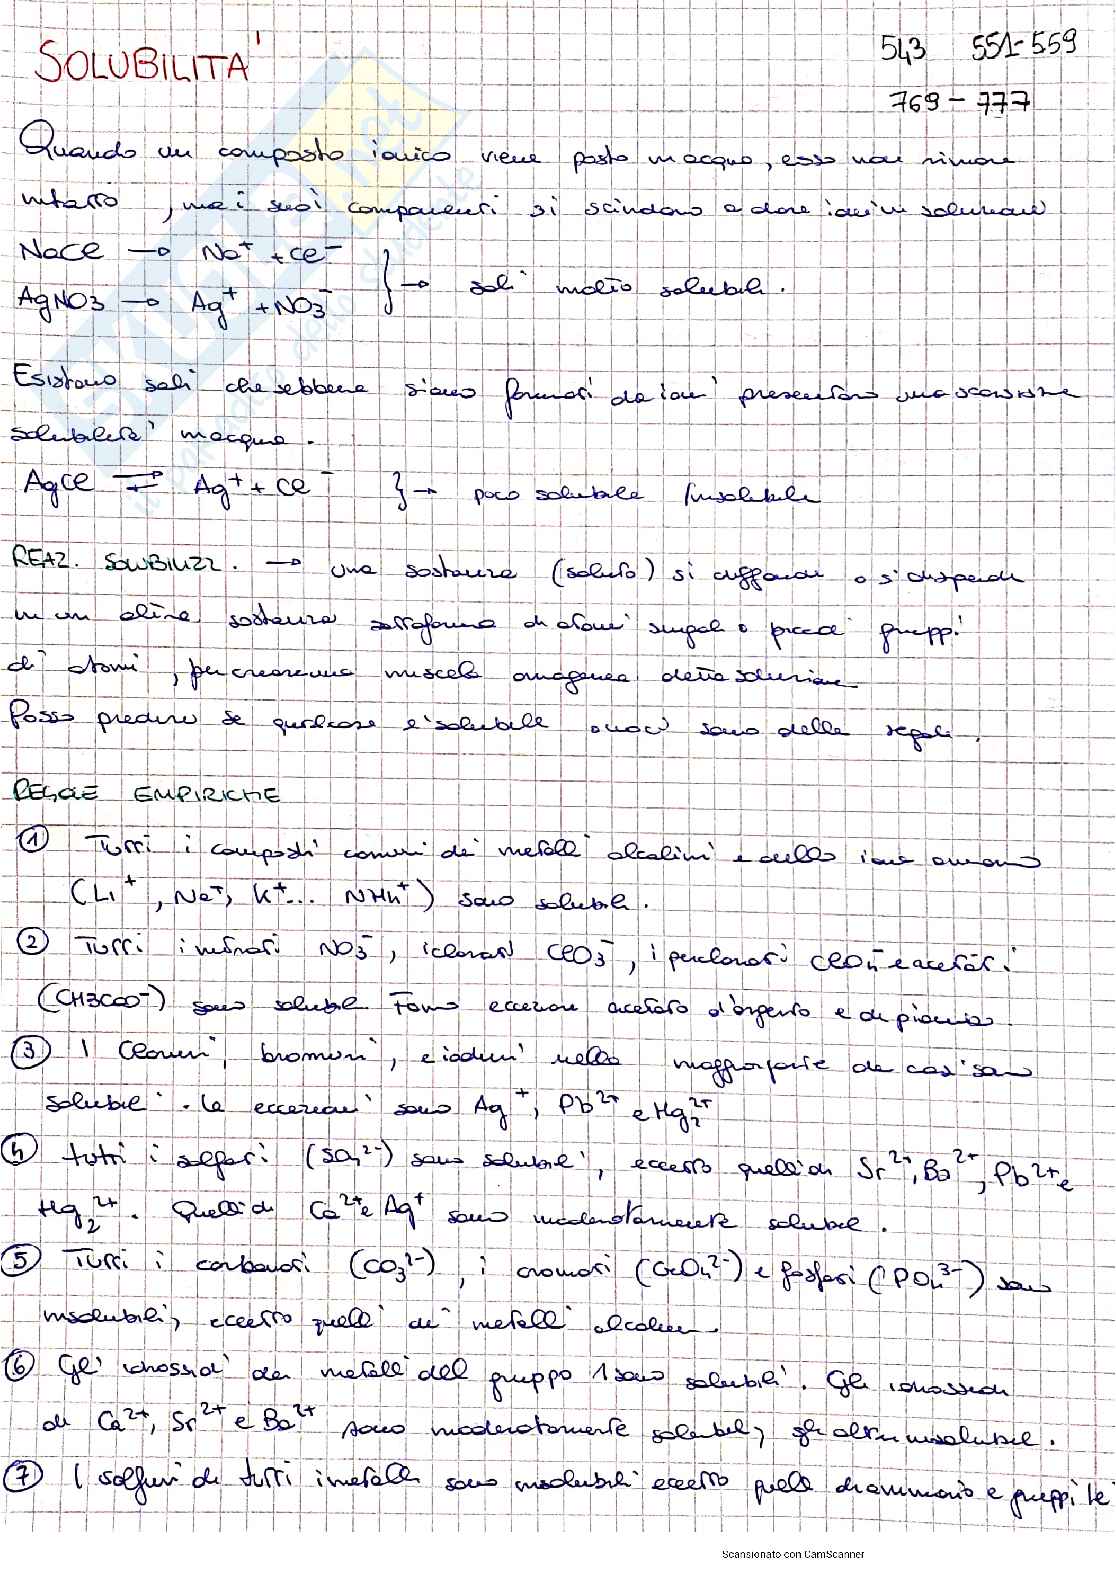 SOLUBILITA'
543 551-559
769-777
Quando un composto ionico viene posto in acqua, esso non rimane
intatto, ma i suoi componenti si scindono a dare ioni in soluzione
NaCl → Na⁺ + Cl⁻
AgNO3 → Ag⁺ + NO3⁻ } → sali molto solubili.
Esistono sali che sebbene siano formati da ioni presentano una scarsissima
solubilità in acqua.
AgCl ⇄ Ag⁺ + Cl⁻ } → poco solubile / insolubile
REAZ. SOLUBILIZZ. → una sostanza (soluto) si diffonde o si disperde
in un altra sostanza sottoforma di atomi singoli o piccoli gruppi
di atomi, per creare una miscela omogenea detta soluzione
Posso predire se qualcosa è solubile o no ci sono delle regole.
REGOLE EMPIRICHE
① Tutti i composti comuni dei metalli alcalini e dello ione ammonio
(Li⁺, Na⁺, K⁺... NH4⁺) sono solubili.
② Tutti i nitrati NO3⁻, i clorati ClO3⁻, i perclorati ClO4⁻ e acetati
(CH3COO⁻) sono solubili Fanno eccezione acetato d'argento e di
③ I cloruri, bromuri, e ioduri nella maggiorparte dei casi sono
solubili. Le eccezioni sono Ag⁺, Pb²⁺ e Hg₂²⁺
④ tutti i solfati (SO4²⁻) sono solubili, eccetto quelli di Sr²⁺, Ba²⁺, Pb²⁺ e
Hg₂²⁺. Quelli di Ca²⁺ e Ag⁺ sono moderatamente solubili.
⑤ Tutti i carbonati (CO3²⁻), i cromati (CrO4²⁻) e fosfati (PO4³⁻) sono
insolubili, eccetto quelli dei metalli alcalini.
⑥ Gli idrossidi dei metalli del gruppo 1 sono solubili. Gli idrossidi
di Ca²⁺, Sr²⁺ e Ba²⁺ sono moderatamente solubili, gli altri insolubili.
⑦ I solfuri di tutti i metalli sono insolubili eccetto quelli d'ammonio e gruppi 1 e
Scansionato con CamScanner